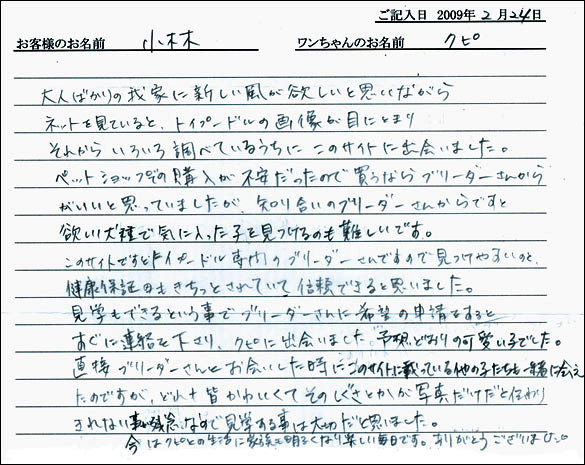 ご記入日 2009年2月24日
お客様のお名前 小林 ワンちゃんのお名前 クピ
大人ばかりの我家に新しい風が欲しいと思いながら
ネットを見ていると、トイプードルの画像が目にとまり
それからいろいろ調べているうちにこのサイトに出会いました。
ペットショップでの購入が不安だったので買うならブリーダーさんから
がいいと思っていましたが、知り合いのブリーダーさんからですと
欲しい犬種で気に入った子を見つけるのも難しいです。
このサイトですとトイプードル専門のブリーダーさんですので見つけやすいのと、
健康保証面もきちっとされていて信頼できると思いました。
見学もできるという事でブリーダーさんに希望の申請をすると
すぐに連絡を下さり、クピに出会いました。予想どおりの可愛い子でした。
直接ブリーダーさんとお会いした時にこのサイトに載っている他の子たちも一緒に会え
たのですが、どれも皆かわいくてそのしぐさとかが写真だけだと伝わり
きれない事が残念なので見学する事は大切だと思いました。
今はクピとの生活に家族も明るくなり楽しい毎日です。ありがとうございました。